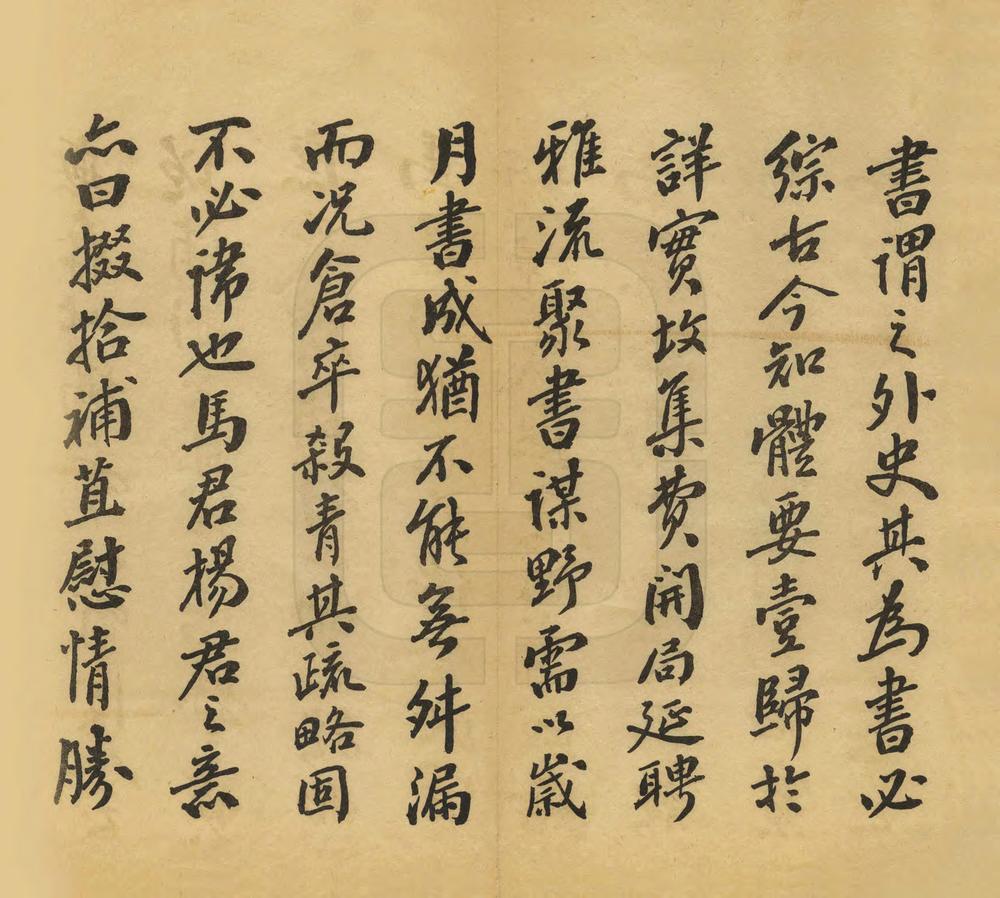 書謂之外史其為書必
綜古今知體要壹歸於
詳實故集費開局延聘
雅流聚書謀野需以歲
月書成猶不能無舛漏
而況倉卒殺青其疏略固
不必諱也馬君楊君之意
亦曰掇拾補苴慰情勝